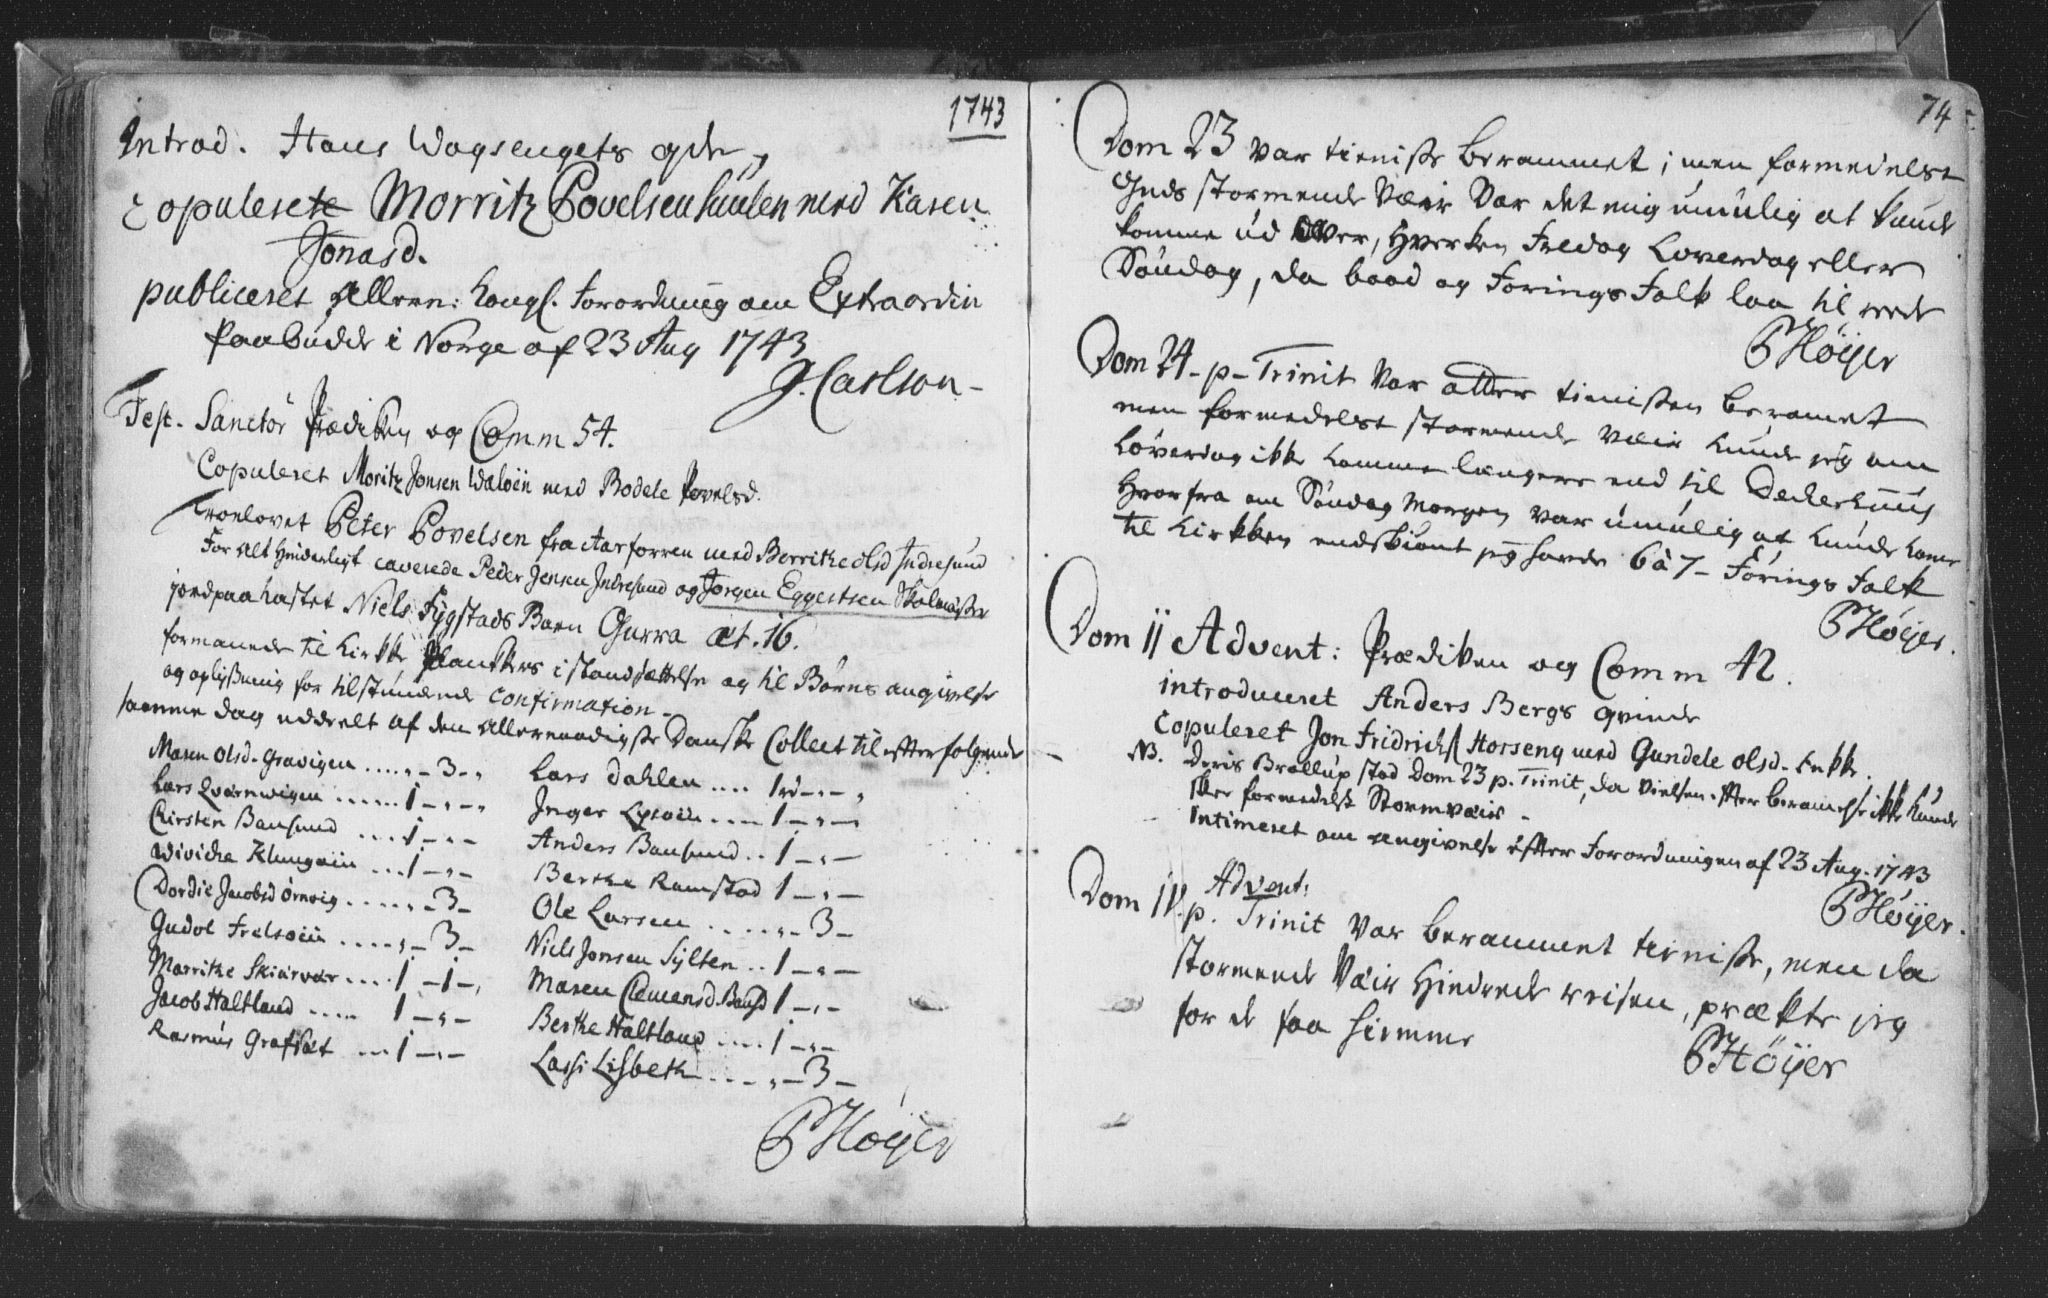 1743
Introd. Hans Wagsengets qde,
Copulerete Morritz Povelsen Suulen med Karen
Jonasd.
publiceret Allern: Kongl. Forordning om Extraordin
Paabudde i Norge af 23 Aug 1743
J. Carlson
Fest. Sanctor Prædiken og Comm 54.
Copuleret Moritz Jonsen Waløen med Bodele Povelsd.
Troelovet Peter Povelsen fra med Berrithe olsd Indresund
For alt Hinderligt caverede Peder Jensen Indresund og Jørgen Eggertsen Skolmester
jordpaakastet Niels Sygstads Barn Gurra æt. 16.
formanede til Kirke Planckers i standsættelse og til Børns angivelse
og oplysning for tilstundende confirmation
samme dag uddeelt af den Allernaadigste Danske Collect til efterfølgende
Maren Olsd. Gravigen .... „ - 3 - „
Lars Qvernwigen ...... 1 - „ - „
Chirsten Bansund .... 1 - „ -
Wiviche Klungøin ... 1 - „ -
Dordie Jacobsd Ørnvig ..... „ - 3 -
Gudol Frelsøin ..... „ - 3 -
Marrithe Skiærvær .... 1 - 1 - „
Jacob Haltland ..... 1 - „ -
Rasmus Grafsæt ... 1 - „ -
Lars Dahlen .... 1 - „ - „
Inger Lysøin ..... 1 - „ -
Anders Bansund .. 1 - „ -
Berthe Ramstad 1 - „ -
Ole Larsen ..... „ - 3 -
Niels Jonsen Sylten .. 1 - „ -
Maren Clemensd. Bansd 1 - „ -
Berthe Haltland .... 1 - „ -
Lassi Lisbeth .... „ - 3 -
P Høyer
74
Dom 23 var tieniste berammet, men formedelst
Guds stormende Væir var det mig umulig at kunde
komme ud over, hverken Fredag Løverdag eller
Søndag, da baad og Førings Folk laa til rede
P Høyer
Dom 24 - p - Trinit var atter tienisten beramet
men formedelst stormende Væir kunde jeg om
Løverdag ikke komme længere end til
Hvorfra om Søndag Morgen var umulig at kunde kome
til Kirken endskiønt jeg hafde 6 à 7 - Førings Folk
P Høyer.
Dom II Advent: Prædiken og Comm 42.
introduceret Anders Bergs qvinde
Copuleret Jon Fridrichs Horseng med Gundele olsd. Enke.
NB. Deris Brøllup stod Dom 23 p. Trinit, da Vielsen efter berammelse ikke kunde
skee formedelst Stormvæir -
Intimeret om angivelse efter Forordningen af 23 Aug. 1743
P Høyer.
Advent:
Dom IV. p. Trinit var berammet tieniste, men da
stormende Væir hindrede reisen, prækte jeg
for de faa hiemme
P Høyer